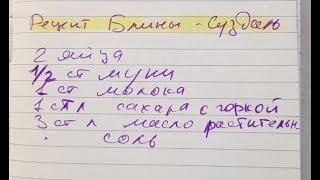 Рецепт Блины - Суздаль
2 яйца
1/2 ст муки
1 ст молока
1 ст л сахара с горкой
3 ст л масло растительн
соль